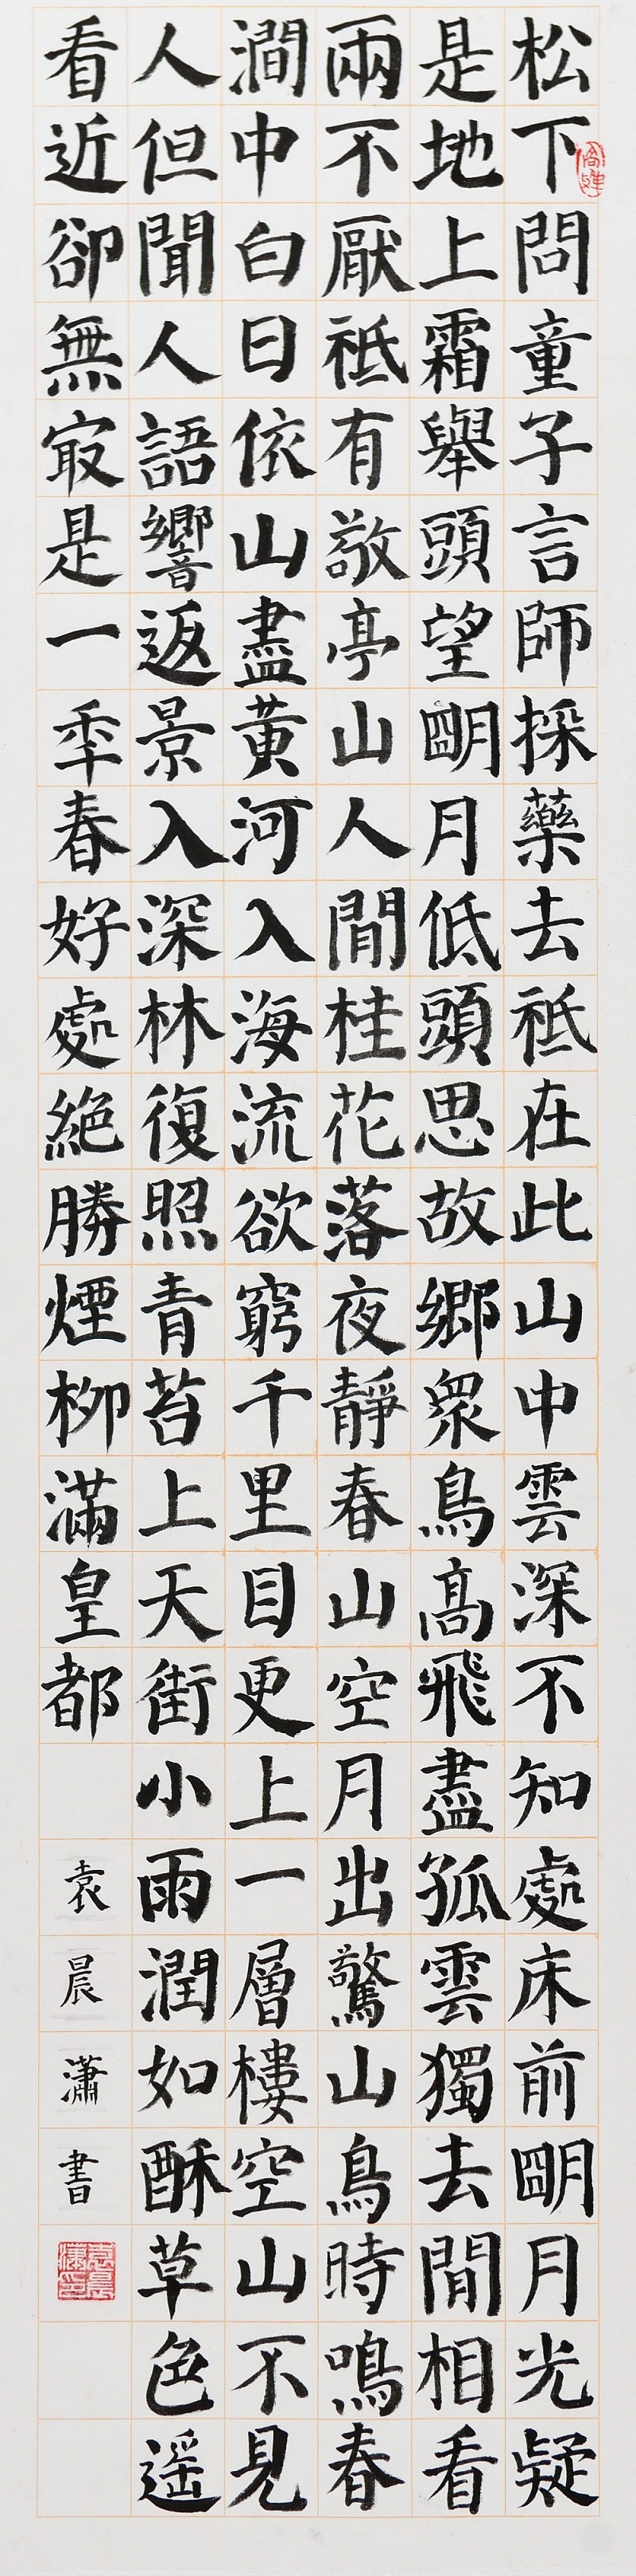 松下問童子言師採藥去祗在此山中雲深不知處床前朙月光疑
是地上霜舉頭望朙月低頭思故鄉衆鳥高飛盡孤雲獨去閒相看
兩不厭祗有敬亭山人閒桂花落夜靜春山空月出驚山鳥時鳴春
澗中白日依山盡黃河入海流欲窮千里目更上一層樓空山不見
人但聞人語響返景入深林復照青苔上天街小雨潤如酥草色遥
看近卻無㝡是一秊春好處絕勝煙柳滿皇都
袁晨瀟書